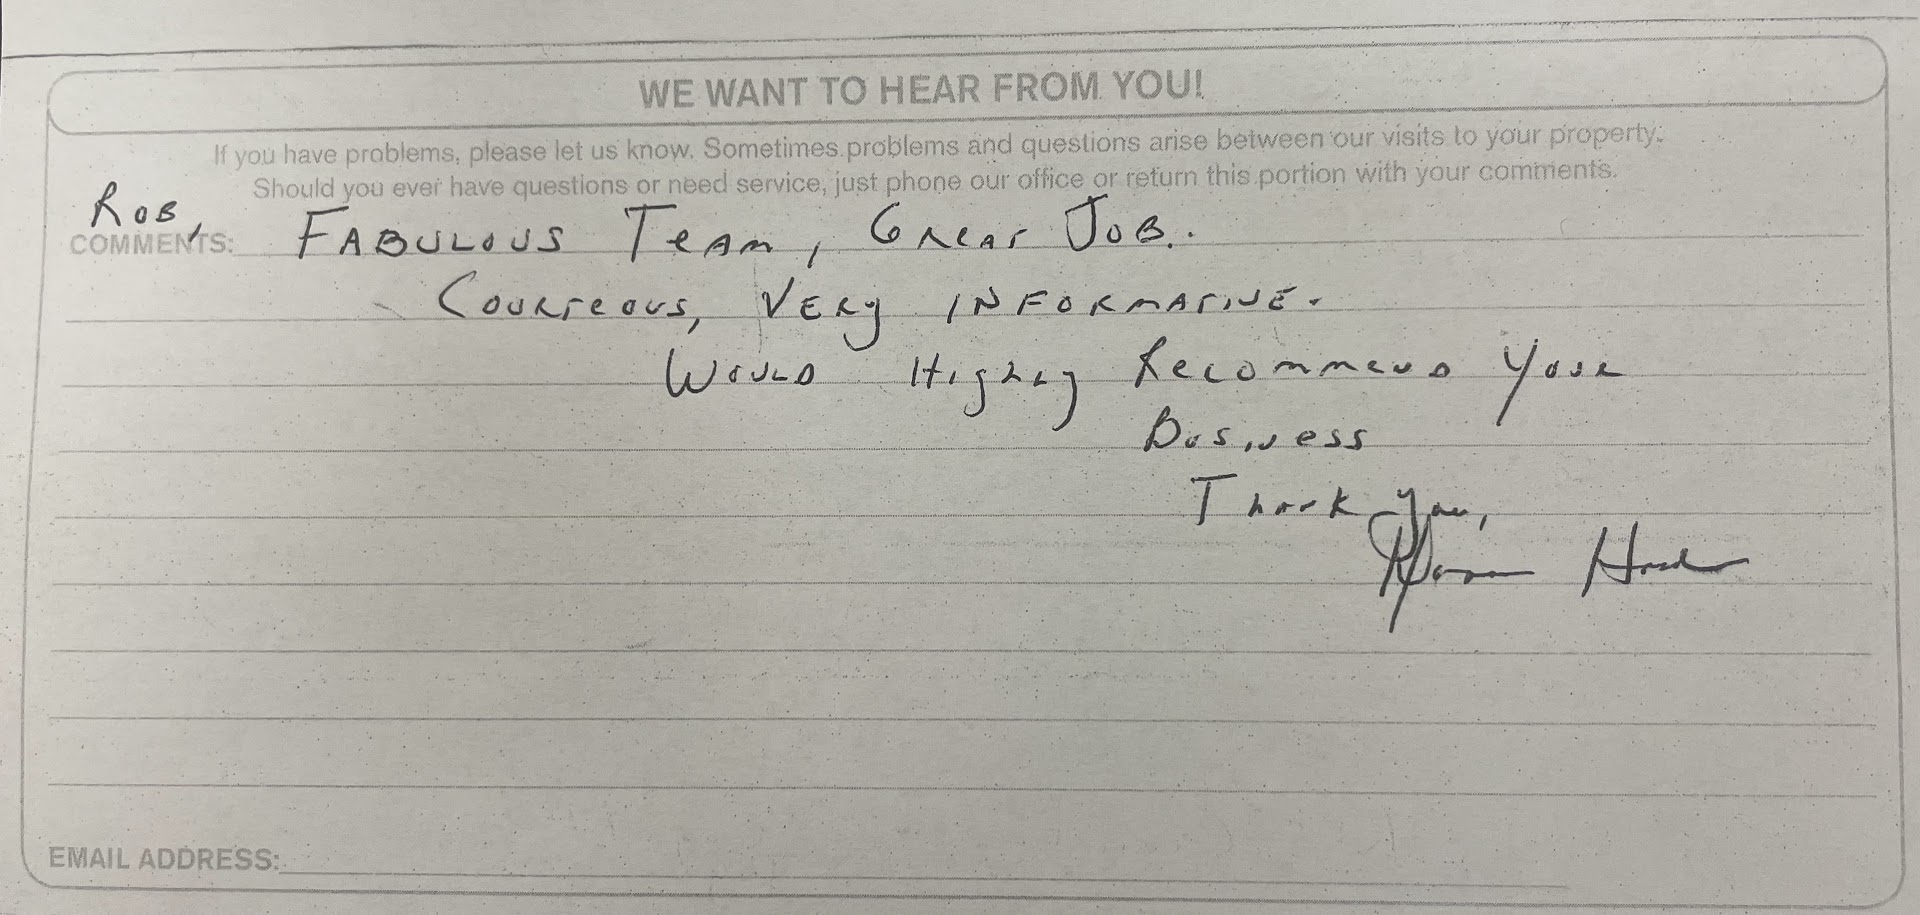 WE WANT TO HEAR FROM YOU!
If you have problems, please let us know. Sometimes problems and questions arise between our visits to your property.
Should you ever have questions or need service, just phone our office or return this portion with your comments.
Rob,
COMMENTS: FABULOUS TEAM, GREAT JOB.
COURTEOUS, VERY INFORMATIVE.
WOULD HIGHLY RECOMMEND YOUR
BUSINESS
Thank you,
EMAIL ADDRESS: